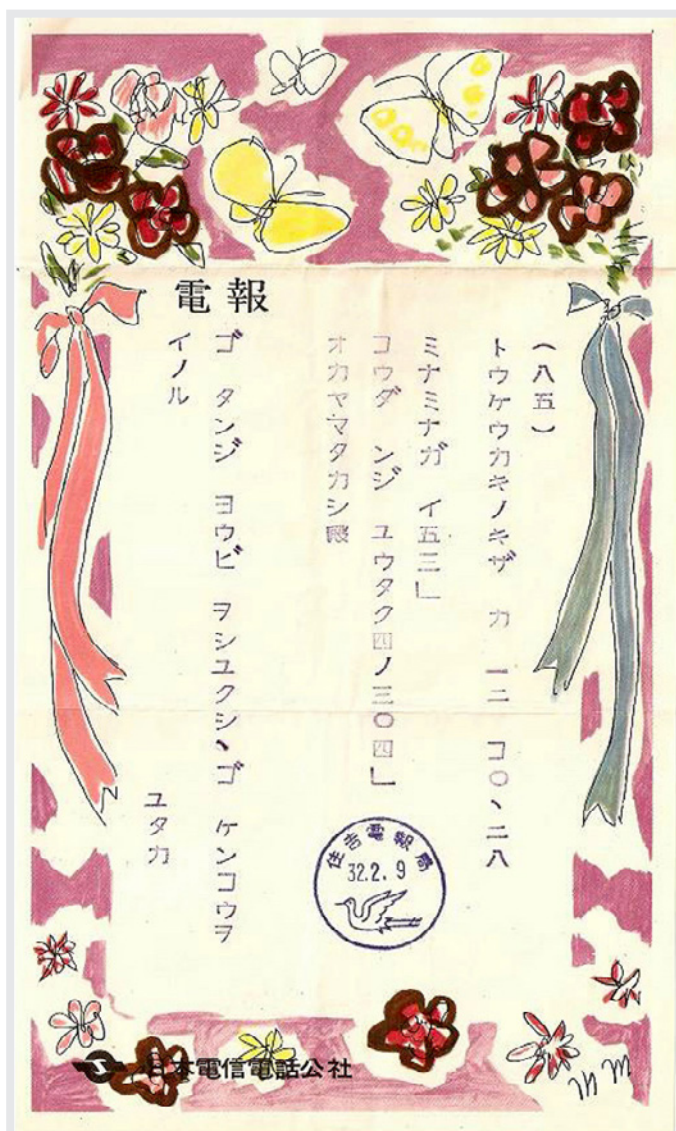 電報
(八五)
トウケウカキノキザ カ 一二 コ〇、二八
ミナミナガ イ五三」
コウダ ンジ ユウタク四ノ三〇四」
オカヤマタカシ殿
ゴ タンジ ヨウビ ヲシユクシ、ゴ ケンコウヲ
イノル
ユタカ
住吉電報局
32.2.9
日本電信電話公社
MM